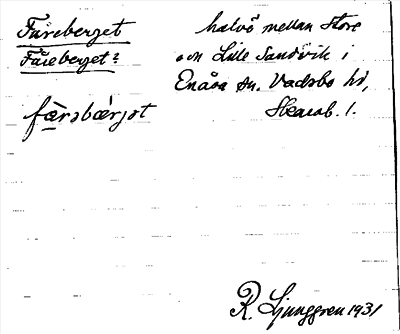 Färeberget halvö mellan Stora
Fåreberget? och Lilla Sandvik i
Enåsa sn. Vadsbo hd,
Skarab. l.
R. Ljunggren 1931